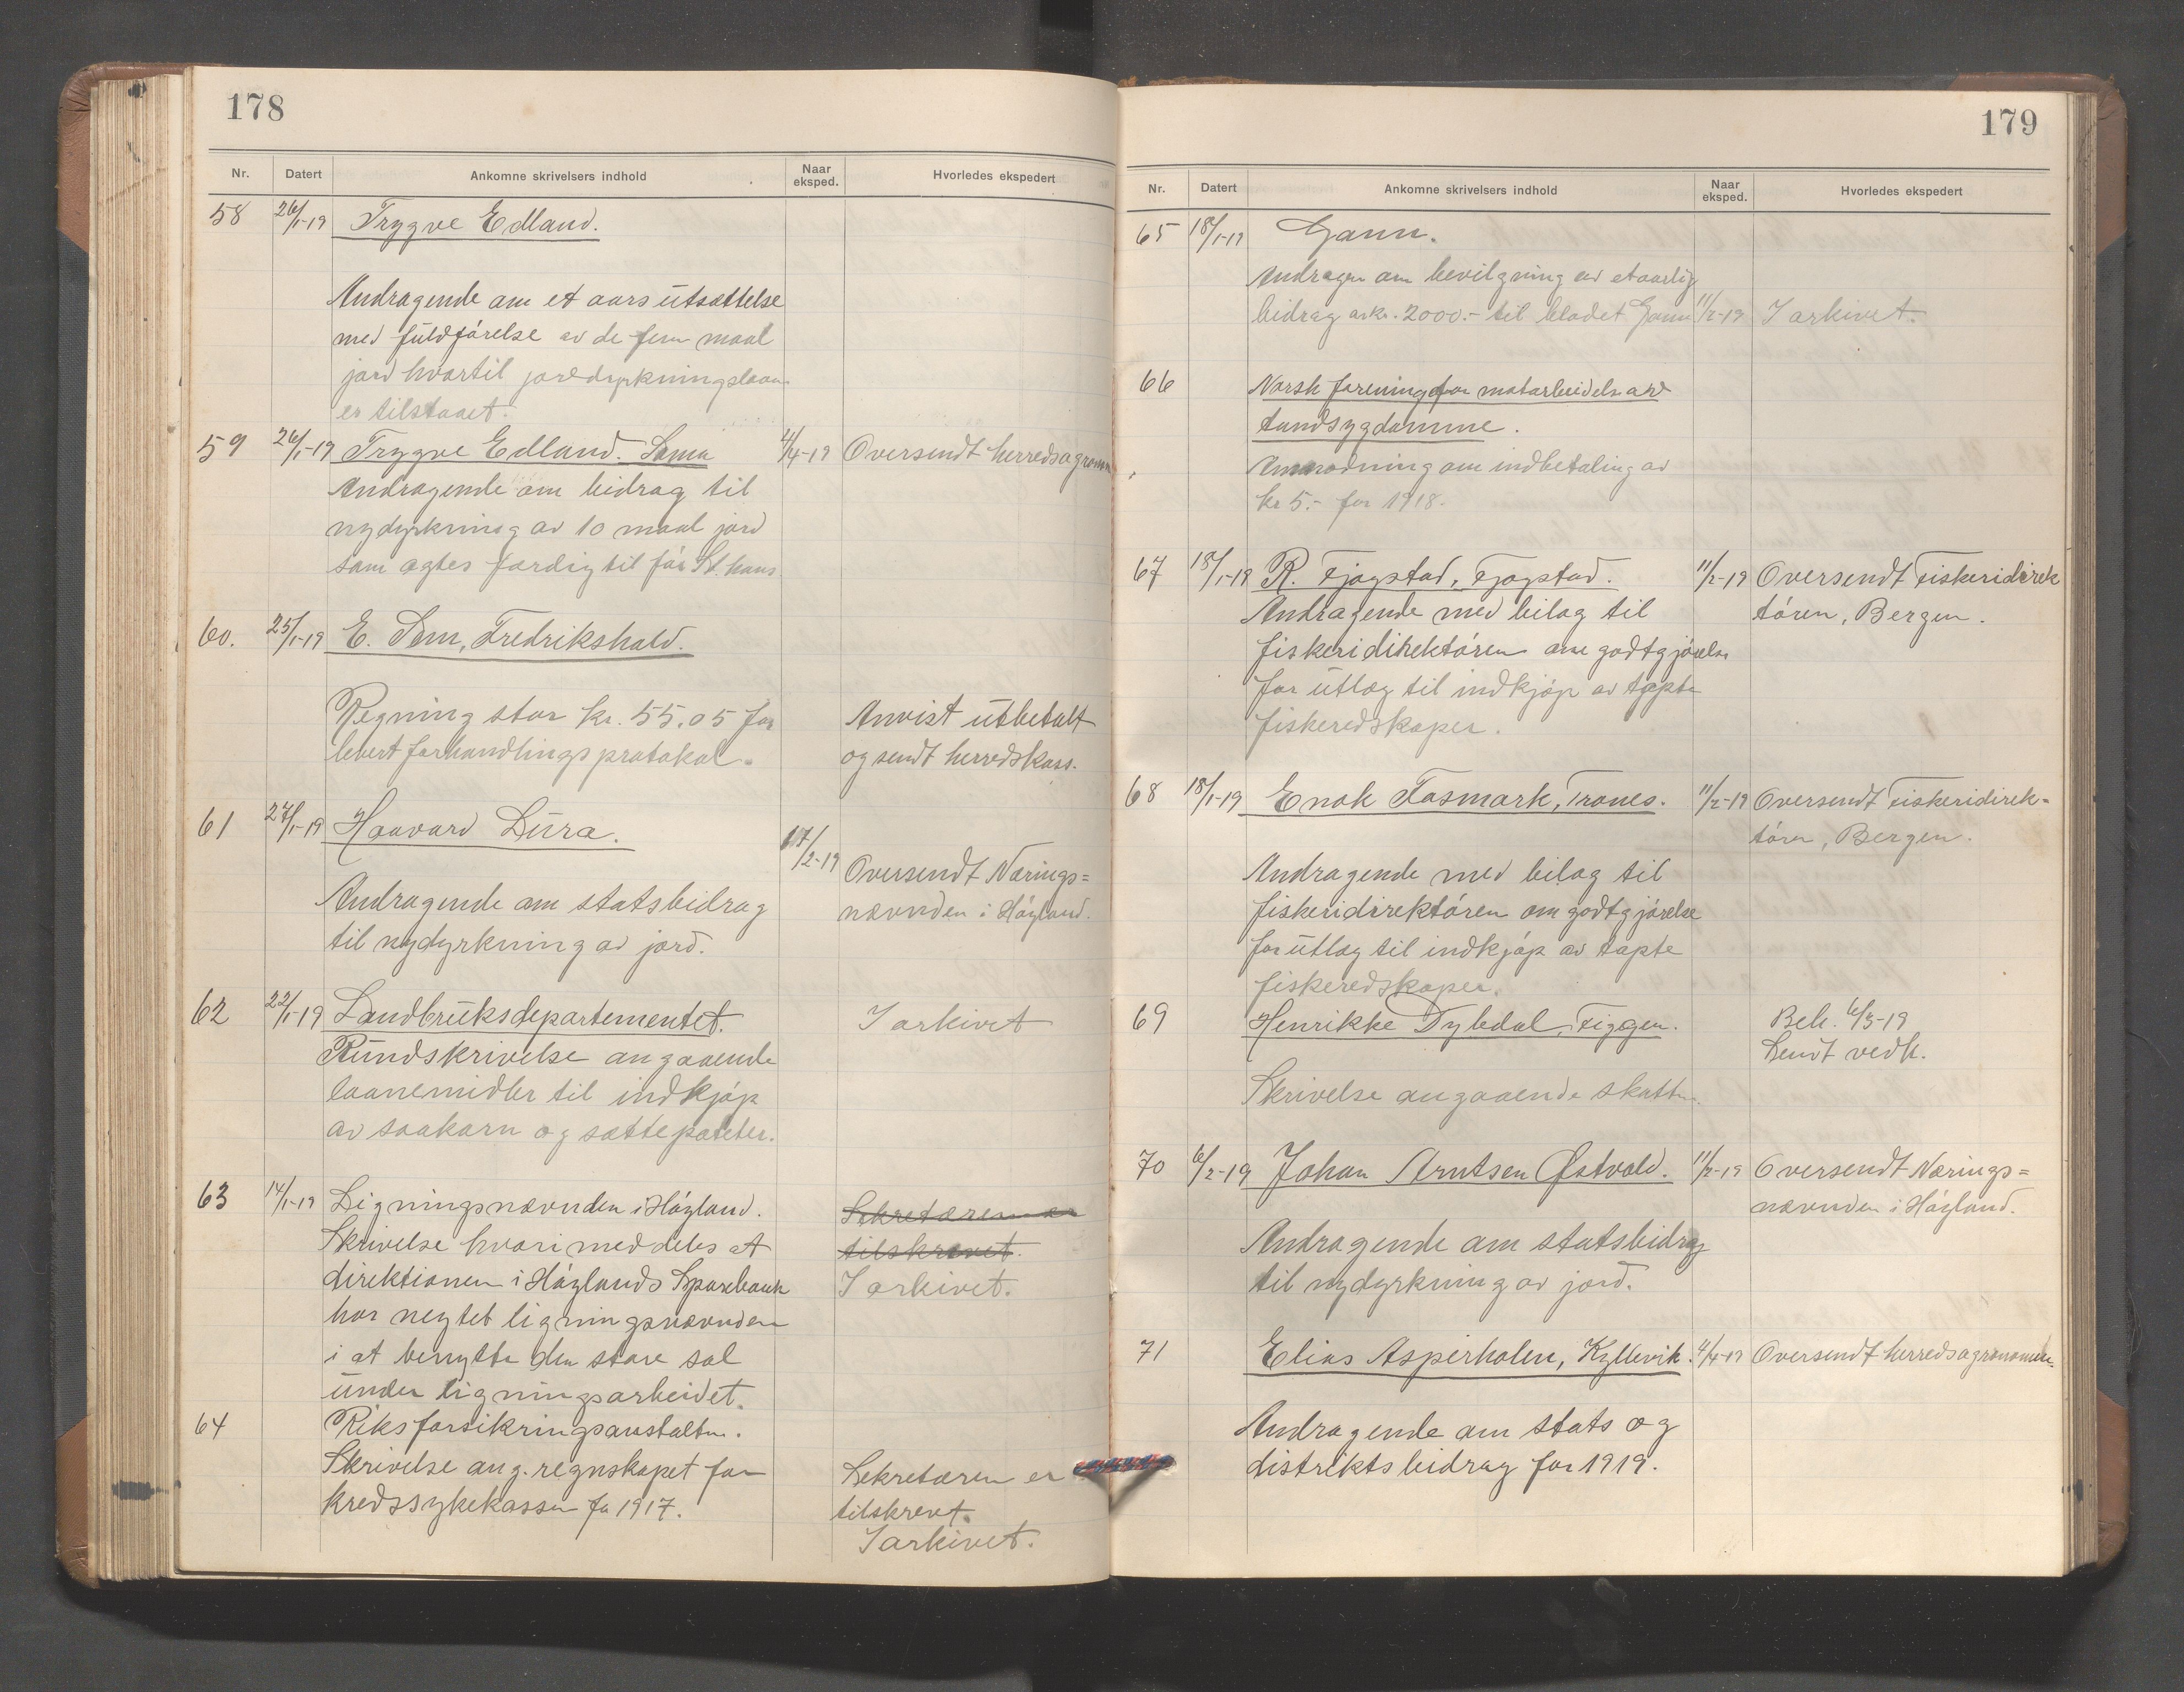 178
Nr. Datert Ankomne skrivelsers indhold Naar eksped. Hvorledes ekspedert
58 26/1-19 Trygve Edland.
Andragende om et aars utsættelse
med fuldførelse av de fem maal
jord hvortil jorddyrkningslaan
er tilstaaet.
59 26/1-19 Trygve Edland. Soma 4/4-19 Oversendt herredsagronom
Andragende om bidrag til
nydyrkning av 10 maal jord
som agtes færdig til før St. hans
60. 25/1-19 E. Sem, Fredrikshald.
Regning stor kr. 55.05 for Anvist utbetalt
levert forhandlingsprotokol. og sendt herredskass.
61 27/1-19 Haavard Lura. 17/2-19
Oversendt Nærings=
Andragende om statsbidrag nævnden i Høyland.
til nydyrkning av jord.
62 22/1-19 Landbruksdepartementet. I arkivet
Rundskrivelse angaaende
laanemidler til indkjøp
av saakorn og sættepoteter.
63 14/1-19 Ligningsnævnden i Høyland. Sekretæren er
Skrivelse hvori meddeles at tilskrevet.
direktionen i Høylands Sparebank I arkivet.
har negtet ligningsnævnden
i at benytte den store sal
under ligningsarbeidet.
64 Riksforsikringsanstalten.
Skrivelse ang. regnskapet for Sekretæren er
kredssykekassen for 1917. tilskrevt.
I arkivet.
179
Nr. Datert Ankomne skrivelsers indhold Naar eksped. Hvorledes ekspedert
65 18/1-19 Gann.
Andragen om bevilgning av et aarlig
bidrag av kr. 2000.- til bladet Gann 11/2-19 I arkivet.
66 Norsk forening for motarbeidelse av
tandsygdomme.
Anmodning om indbetaling av
kr 5.- for 1918.
67 18/1-19 R. Fjogstad, Fjogstad. 11/2-19 Oversendt Fiskeridirek
Andragende med bilag til tøren, Bergen.
fiskeridirektøren om godtgjørelse
for utlæg til indkjøp av tapte
fiskeredskaper.
68 18/1-19 Enok Fosmark, Trones. 11/2-19 Oversendt Fiskeridirek-
tøren, Bergen.
Andragende med bilag til
fiskeridirektøren om godtgjørelse
for utlæg til indkjøp av tapte
fiskeredskaper.
69 Henrikke Tybdal, Figgen. Beh. 6/3-19
Sendt vedk.
Skrivelse angaaende skatten.
70 6/2-19 Johan Arntsen Østvold. 11/2-19 Oversendt Nærings=
nævnden i Høyland.
Andragende om statsbidrag
til nydyrkning av jord.
71 Elias Asperholen, Kyllevik. 4/4-19 Oversendt herredsagronomen.
Andragende om stats og
distriktsbidrag for 1919.